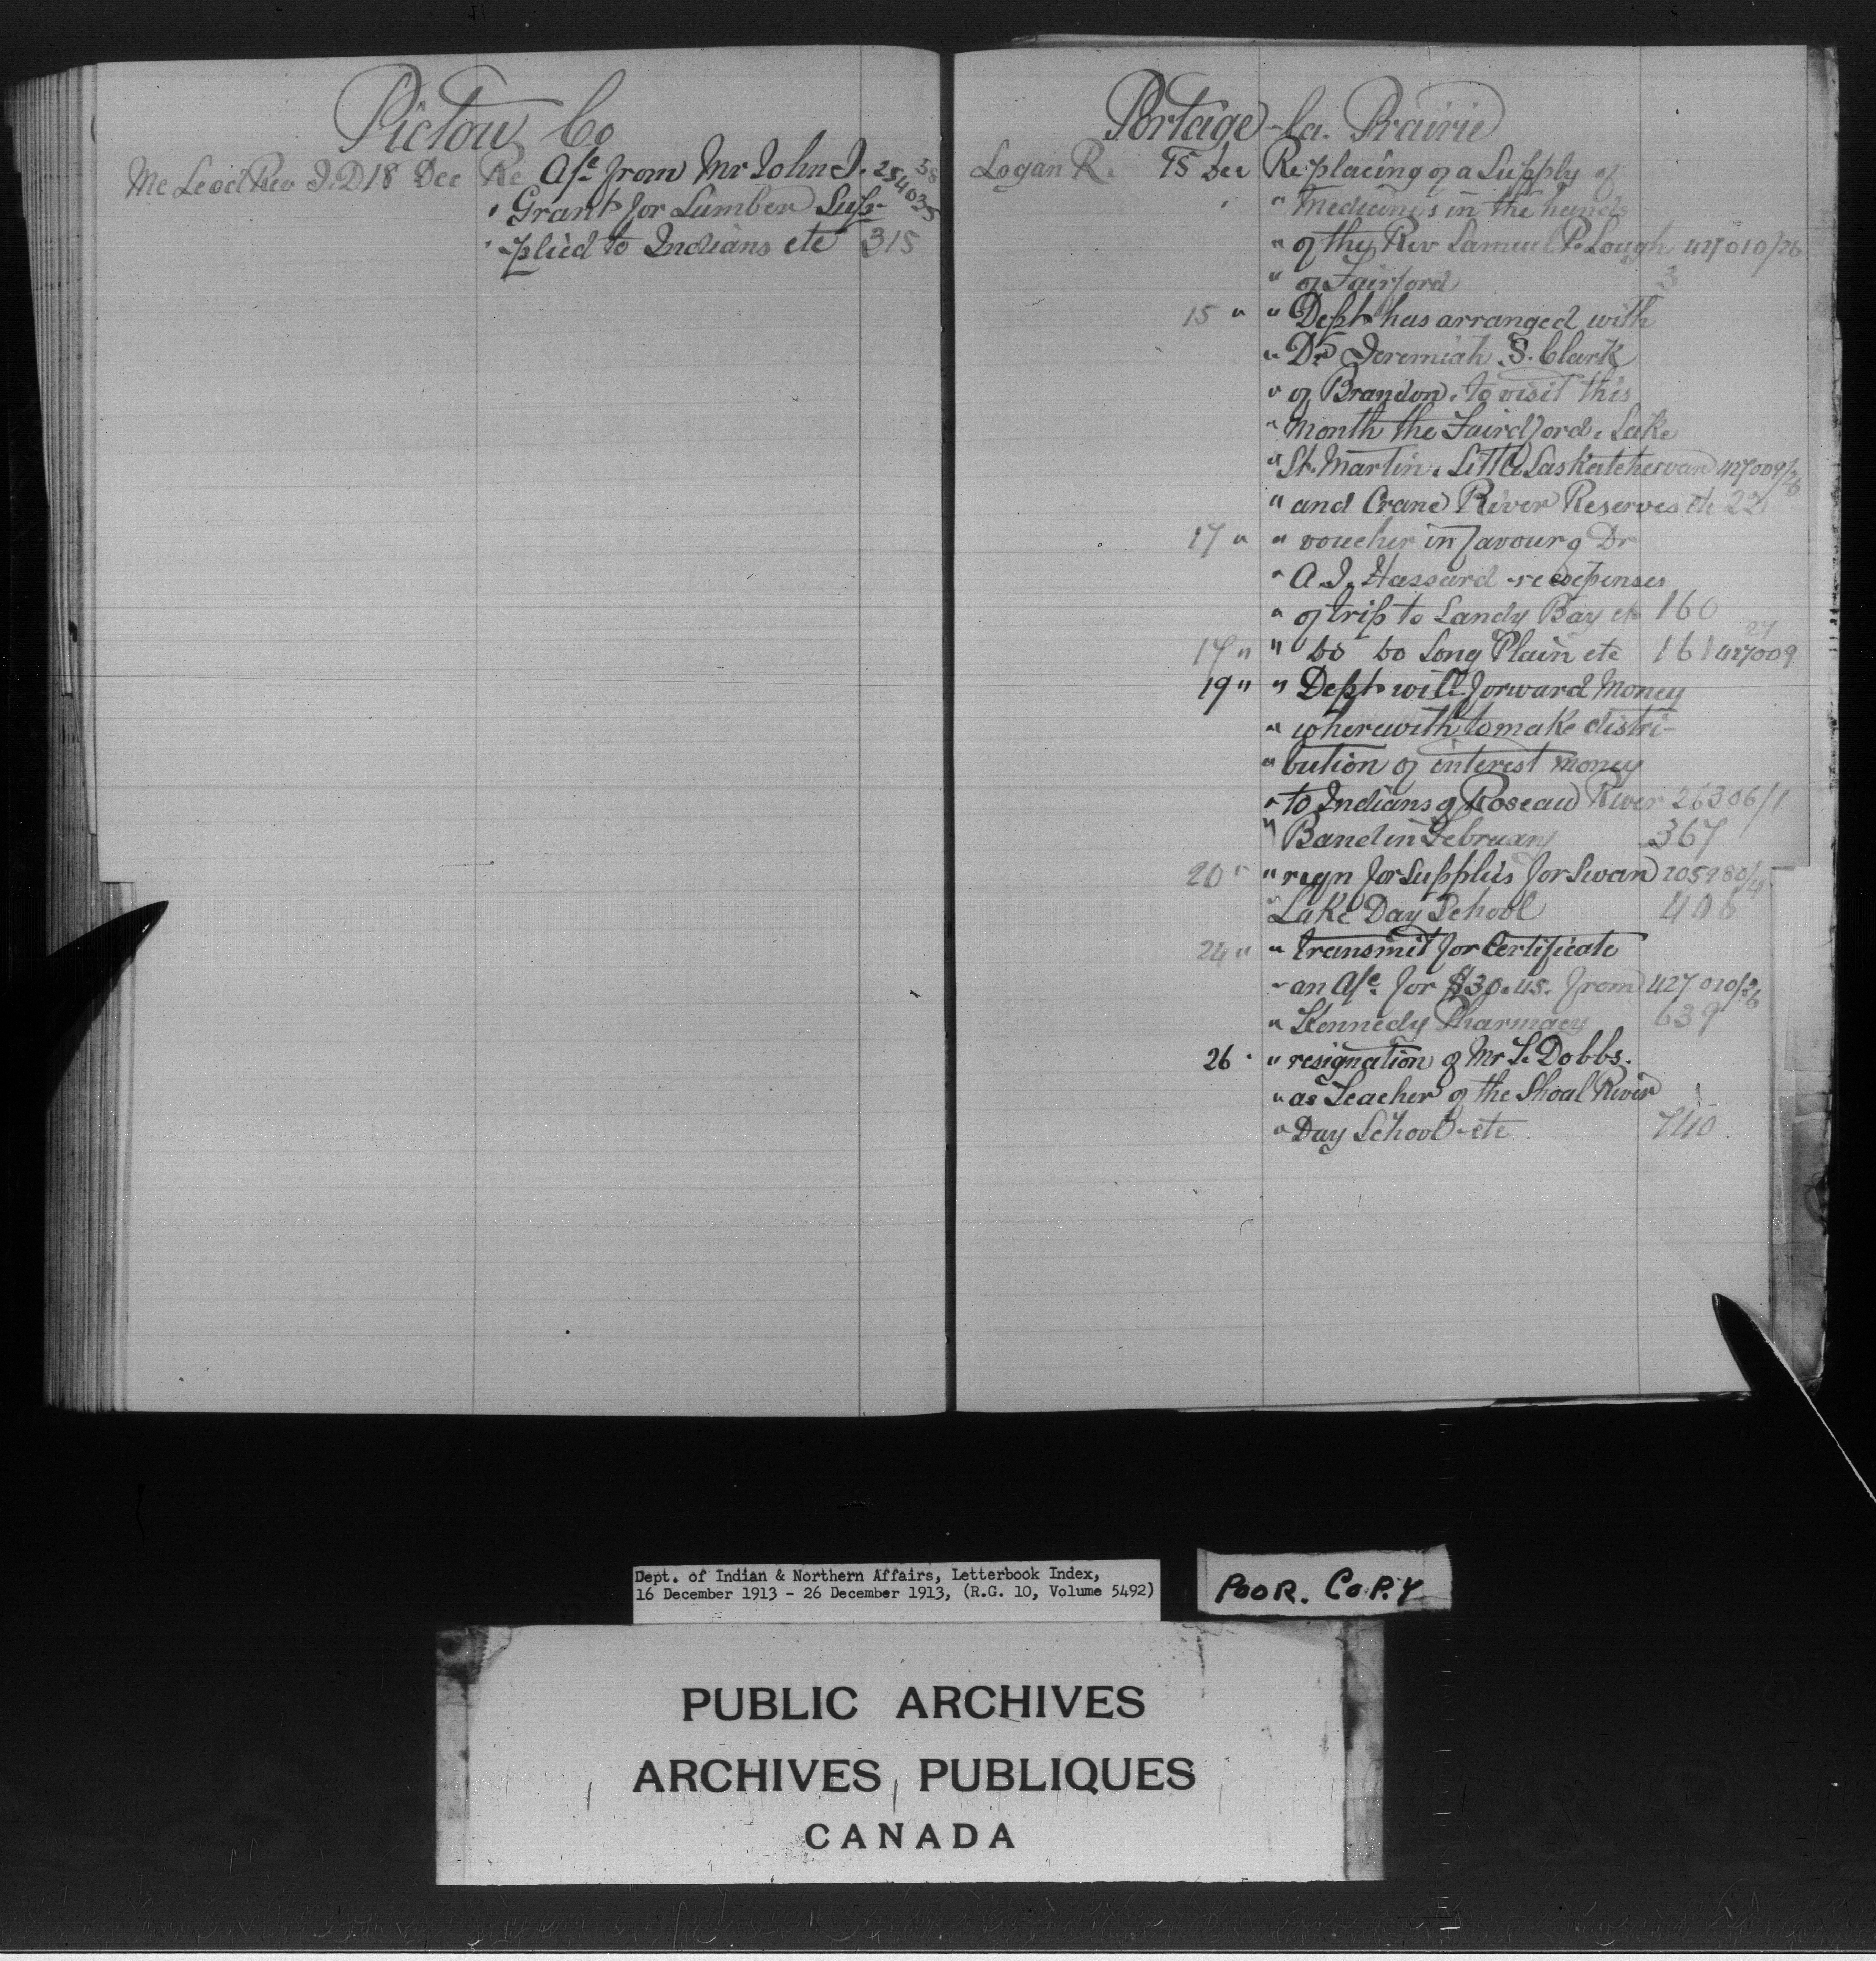 Pictou Co
McLeod Rev J. D 18 Dec Re A/c from Mr John J. 254035
" Grant for Lumber Sup-
" -plied to Indians etc 315
Portage-la-Prairie
Logan R. 15 Dec Re placing of a Supply of
" Medicines in the hands
" of the Rev Samuel P. Lough 427010/26
" of Fairford 3
15 " " Dept has arranged with
" Dr Jeremiah S. Clark
" of Brandon, to visit this
" month the Fairdford, Lake
" St. Martin, Little Saskatchewan 427009/26
" and Crane River Reserves etc 22
17 " " voucher in favour of Dr
" A. J. Hassard re expenses
" of trip to Sandy Bay etc 160
17 " " do do Long Plain etc 161 427009 27
19 " " Dept will forward Money
" wherewith to make distri-
" bution of interest money
" to Indians of Roseau River 26306/1
" Band in February 367
20 " " reqn for supplies for Swan 205980/4
" Lake Day School 406
24 " " transmit for Certificate
" an A/c for $30.45. from 427010/26
" Kennedy Pharmacy 639
26 " " resignation of Mr S. Dobbs.
" as Teacher of the Shoal River
" Day School etc 740
Dept. of Indian & Northern Affairs, Letterbook Index,
16 December 1913 - 26 December 1913, (R.G. 10, Volume 5492)
POOR. COPY
PUBLIC ARCHIVES
ARCHIVES PUBLIQUES
CANADA